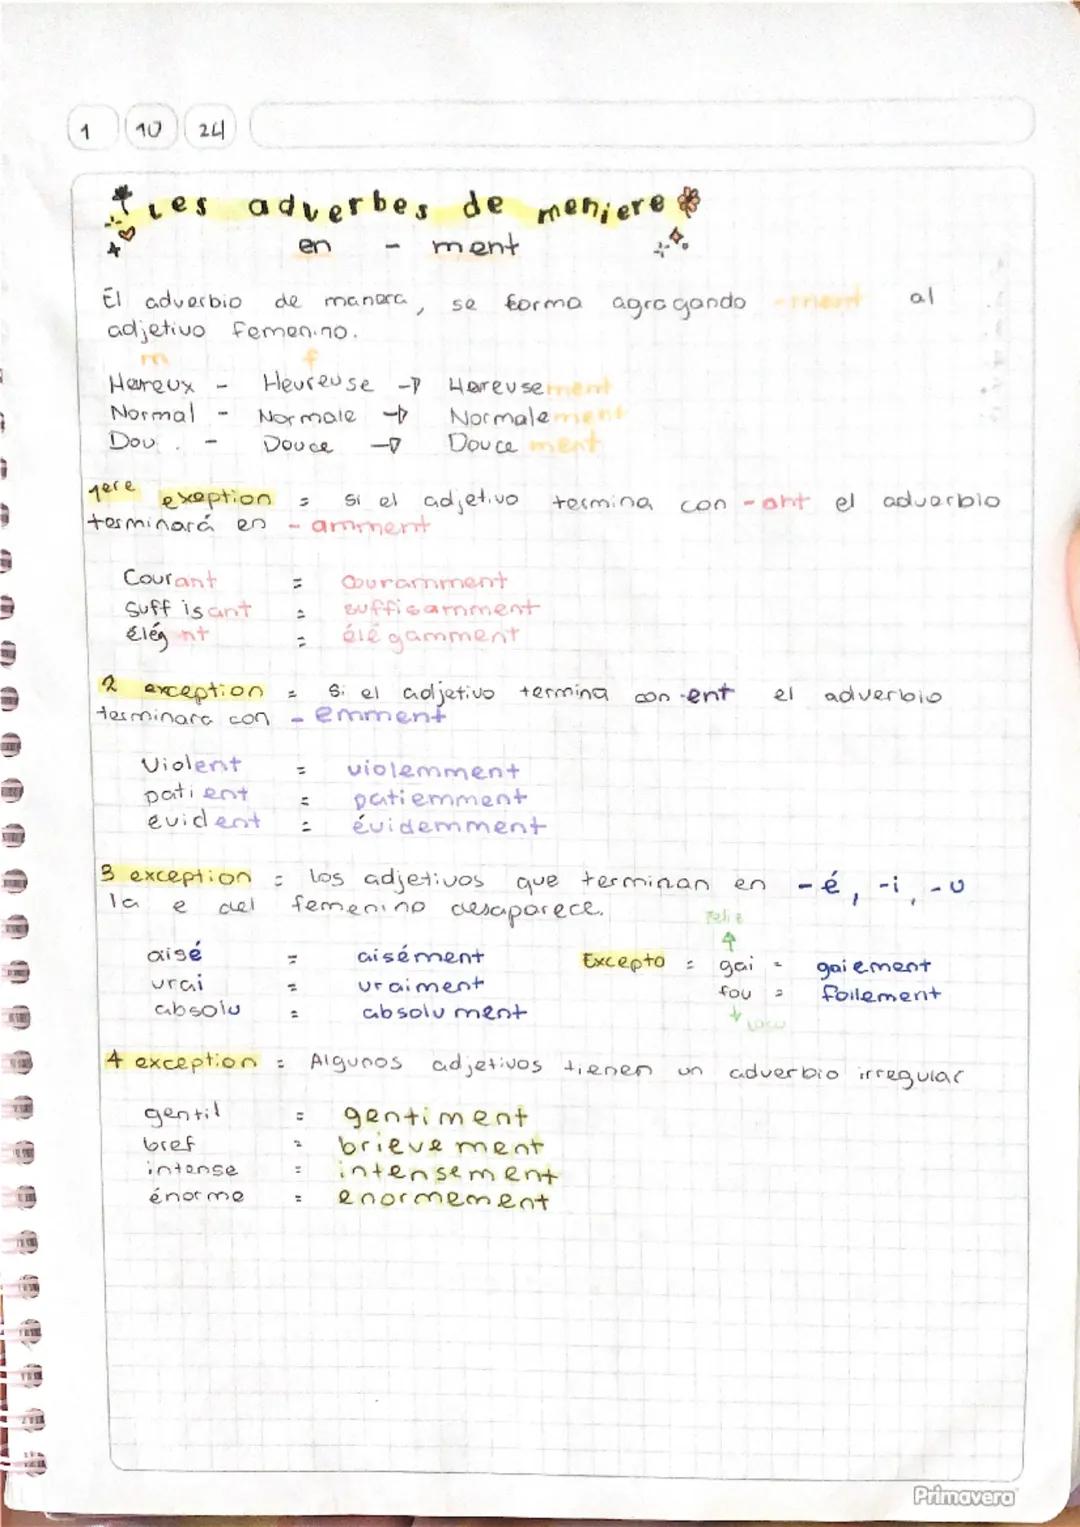 1 10 24
Les adverbes de meniere
en - ment
El adverbio de manera, se forma agregando -ment al
adjetivo femenino.
m f
Hereux - Heureuse → Hereusement
Normal - Normale → Normalement
Dou - Douce → Doucement
1ere exeption = si el adjetivo termina con -ant el adverbio
terminará en - amment
Courant = Couramment
Suffisant = suffisamment
Élég nt = élégamment
2 exception = Si el adjetivo termina con -ent el adverbio
terminara con - emment
Violent = violemment
patient = patiemment
évident = évidemment
3 exception = los adjetivos que terminan en -é, -i, -u
la e del femenino desaparece.
Feliz
aisé = aisément Excepto = gai = gaiement
vrai = vraiment fou = follement
absolu = absolument
Loco
4 exception = Algunos adjetivos tienen un adverbio irregular
gentil = gentiment
bref = brievement
intense = intensement
énorme = enormement
Primavera